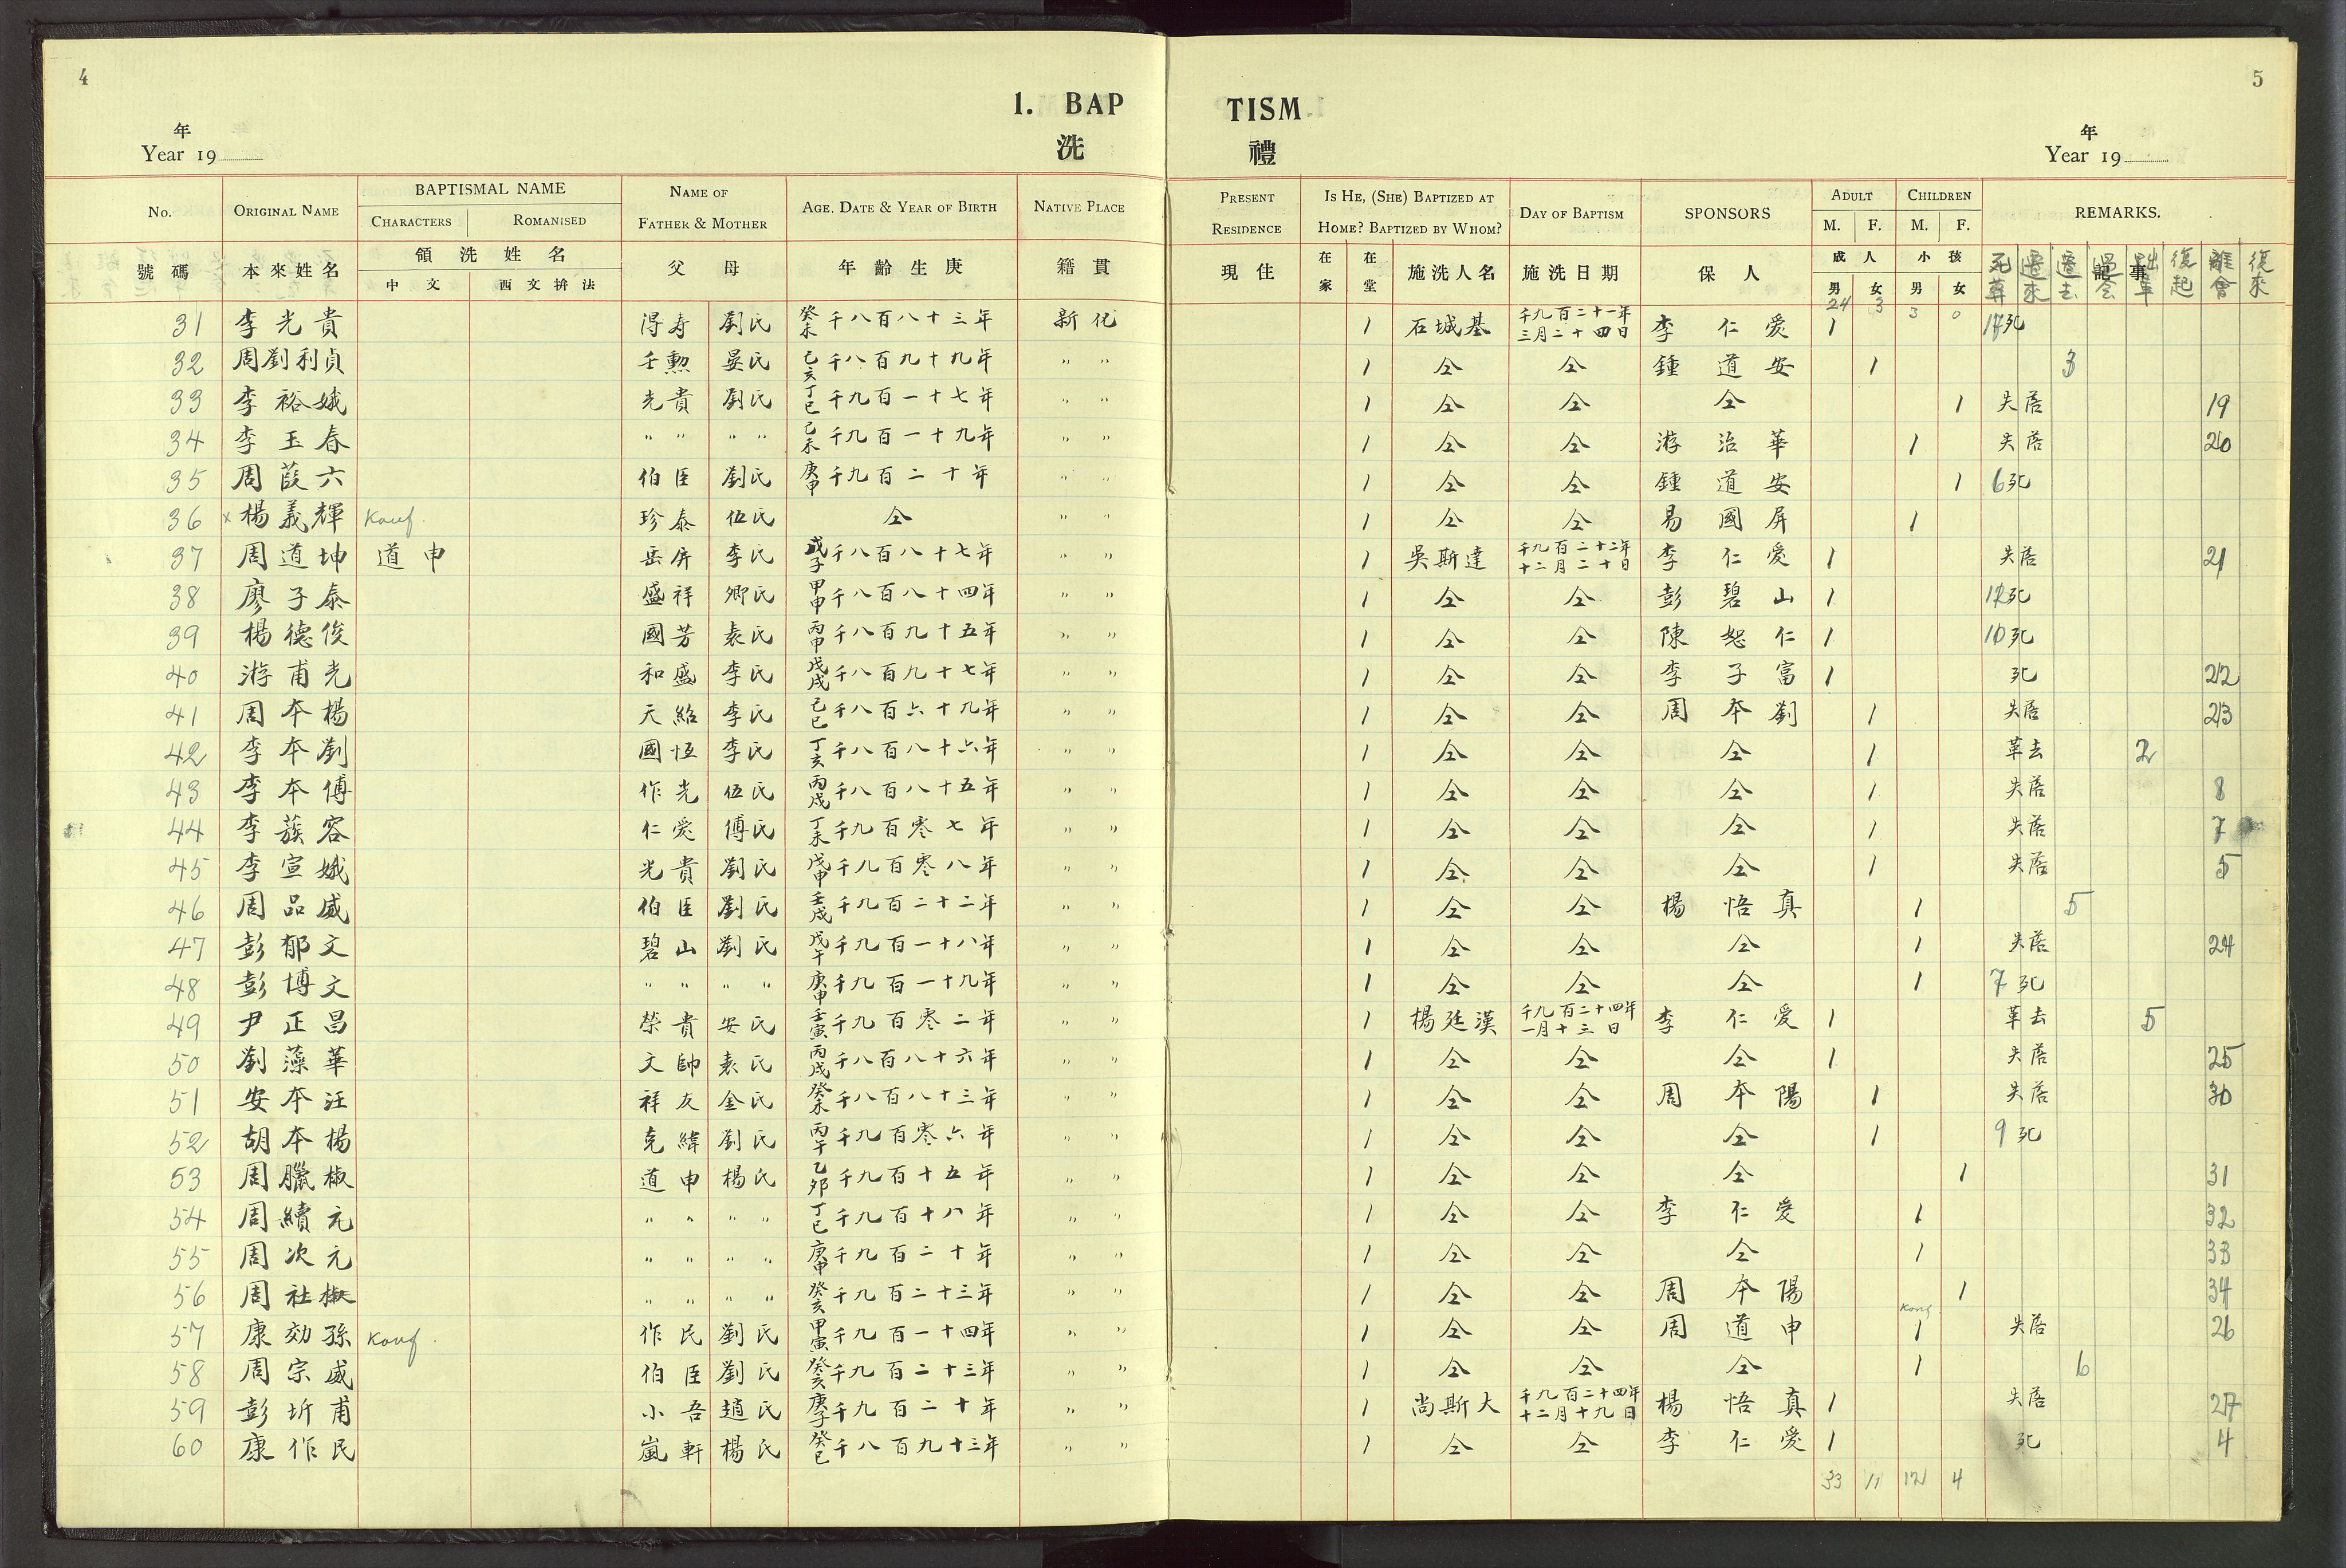 4
5
1. BAP TISM
洗 禮
年
Year 19
年
Year 19
No. ORIGINAL NAME BAPTISMAL NAME NAME OF FATHER & MOTHER AGE. DATE & YEAR OF BIRTH NATIVE PLACE PRESENT RESIDENCE IS HE, (SHE) BAPTIZED AT HOME? BAPTIZED BY WHOM? DAY OF BAPTISM SPONSORS ADULT CHILDREN REMARKS.
CHARACTERS ROMANISED M. F. M. F.
號碼 本來姓名 領洗姓名 父母 年齡生庚 籍貫 現住 在家 在堂 施洗人名 施洗日期 保人 成人 小孩 記事
中文 西文拚法 男 女 男 女
死葬 遷來 遷去 革 復起 離會 復來
24 3 3 0
31 李光貴 得寿 劉氏 癸未 千八百八十三年 新化 1 石城基 千九百二十一年三月二十四日 李仁愛 1 死
32 周劉利貞 壬勲 晏氏 己亥 千八百九十九年 〃 〃 1 仝 仝 鍾道安 1 3
33 李裕娥 光貴 劉氏 丁巳 千九百一十七年 〃 〃 1 仝 仝 仝 1 失落 19
34 李玉春 〃 〃 〃 〃 己未 千九百一十九年 〃 〃 1 仝 仝 游治華 1 失落 20
35 周葭六 伯臣 劉氏 庚申 千九百二十年 〃 〃 1 仝 仝 鍾道安 1 6 死
36 x 楊義輝 Konf. 珍泰 伍氏 仝 〃 〃 1 仝 仝 易國屏 1
37 周道坤 道申 岳屏 李氏 戊子 千八百八十七年 〃 〃 1 吳斯達 千九百二十二年十二月二十日 李仁愛 1 失落 21
38 廖子泰 盛祥 卿氏 甲申 千八百八十四年 〃 〃 1 仝 仝 彭碧山 1 12 死
39 楊德俊 國芳 袁氏 丙申 千八百九十五年 〃 〃 1 仝 仝 陳恕仁 1 10 死
40 游甫光 和盛 李氏 戊戌 千八百九十七年 〃 〃 1 仝 仝 李子富 1 死 22
41 周本楊 天紹 李氏 己巳 千八百六十九年 〃 〃 1 仝 仝 周本劉 1 失落 23
42 李本劉 國恆 李氏 丁亥 千八百八十六年 〃 〃 1 仝 仝 仝 1 革去 2
43 李本傅 作光 伍氏 丙戌 千八百八十五年 〃 〃 1 仝 仝 仝 1 失落 8
44 李蔟容 仁愛 傅氏 丁未 千九百零七年 〃 〃 1 仝 仝 仝 1 失落 7
45 李宣娥 光貴 劉氏 戊申 千九百零八年 〃 〃 1 仝 仝 仝 1 失落 5
46 周品威 伯臣 劉氏 壬戌 千九百二十二年 〃 〃 1 仝 仝 楊悟真 1 5
47 彭郁文 碧山 劉氏 戊午 千九百一十八年 〃 〃 1 仝 仝 仝 1 失落 24
48 彭博文 〃 〃 〃 〃 庚申 千九百一十九年 〃 〃 1 仝 仝 仝 1 7 死
49 尹正昌 榮貴 安氏 壬寅 千九百零二年 〃 〃 1 楊廷漢 千九百二十四年一月十三日 李仁愛 1 革去 5
50 劉藻華 文帥 袁氏 丙戌 千八百八十六年 〃 〃 1 仝 仝 仝 1 失落 25
51 安本汪 祥友 金氏 癸未 千八百八十三年 〃 〃 1 仝 仝 周本陽 1 失落 30
52 胡本楊 克緯 劉氏 丙午 千九百零六年 〃 〃 1 仝 仝 仝 1 9 死
53 周臘椒 道申 楊氏 乙夘 千九百十五年 〃 〃 1 仝 仝 仝 1 31
54 周續元 〃 〃 〃 〃 丁巳 千九百十八年 〃 〃 1 仝 仝 李仁愛 1 32
55 周次元 〃 〃 〃 〃 庚申 千九百二十年 〃 〃 1 仝 仝 仝 1 33
56 周社椒 〃 〃 〃 〃 癸亥 千九百二十三年 〃 〃 1 仝 仝 周本陽 1 34
57 康効孫 Konf. 作民 劉氏 甲寅 千九百一十四年 〃 〃 1 仝 仝 周道申 Konf. 1 失落 26
58 周宗威 伯臣 劉氏 癸亥 千九百二十三年 〃 〃 1 仝 仝 仝 1 6
59 彭圻甫 小吾 趙氏 庚子 千九百二十年 〃 〃 1 尚斯大 千九百二十四年十二月十九日 楊悟真 1 失落 27
60 康作民 嵐軒 楊氏 癸巳 千八百九十三年 〃 〃 1 仝 仝 李仁愛 1 死 4
33 11 12 4